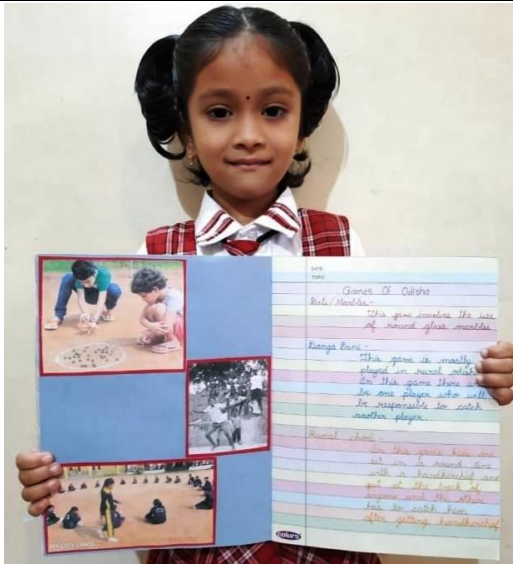 DATE
TOPIC
Games Of Odisha
Binti/Marbles:-
This game involves the use
of round glass marbles
Danga Rani:-
This game is mostly
played in rural odisha
In this game there will
be one player who will
be responsible to catch
another player.
Rumal chori:-
In this game kids
sit in a round line
with a handkerchief and
put at the back of
anyone and the other
has to catch him
after getting handkerchief
colurs